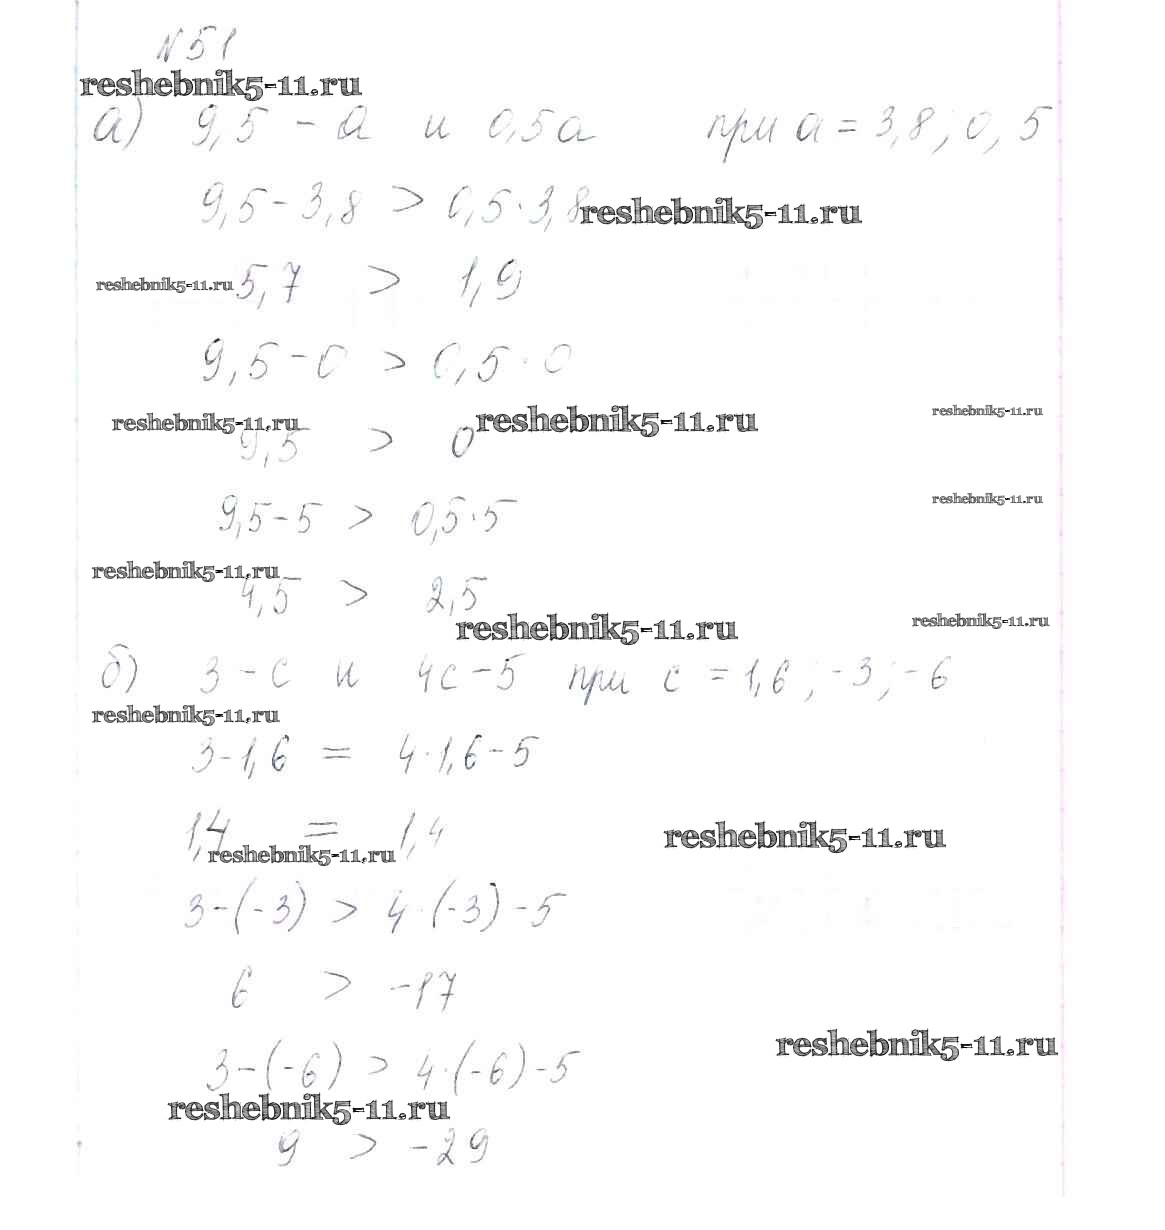 N 51
reshebnik5-11.ru
а) 9,5 - а и 0,5а при а = 3,8; 0, 5
9,5 - 3,8 > 0,5 · 3,8 reshebnik5-11.ru
reshebnik5-11.ru 5,7 > 1,9
9,5 - 0 > 0,5 · 0
reshebnik5-11.ru reshebnik5-11.ru reshebnik5-11.ru
9,5 > 0
9,5 - 5 > 0,5 · 5 reshebnik5-11.ru
reshebnik5-11.ru
4,5 > 2,5
reshebnik5-11.ru reshebnik5-11.ru
б) 3 - с и 4с - 5 при с = 1,6; -3; -6
reshebnik5-11.ru
3 - 1,6 = 4 · 1,6 - 5
1,4 = 1,4 reshebnik5-11.ru
reshebnik5-11.ru
3 - (-3) > 4 · (-3) - 5
6 > -17
reshebnik5-11.ru
3 - (-6) > 4 · (-6) - 5
reshebnik5-11.ru
9 > -29